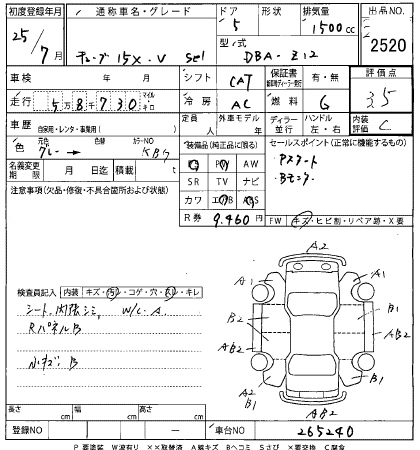 初度登録年月 通称車名・グレード ドア 形状 排気量 出品NO
25/7月 キューブ 15X・V sel 5 1500cc 2520
型式 DBA-Z12
車検 年 月 シフト CAT 保証書 有・無 評価点
走行 58730 マイル キロ 冷房 AC 燃料 G 3.5
車歴 自家用・レンタ・事業用( ) 定員 人 外車モデル 年 ディーラー 並行 ハンドル 左・右 内装評価 C
色 グレー→ 色替 カラーNO KBク
装備品(純正品に限る) セールスポイント(正常に機能するもの)
PS PW AW Pスタート
名義変更期限 月 日 積載 t SR TV ナビ Bモニター
注意事項(欠品・修復・不具合箇所および状態) カワ エアB ABS
R券 9.460円
FW キズ・ヒビ割・リペア跡・X要
検査員記入 内装 キズ・汚レ・コゲ・穴・スレ・キレ
シート、内張シミ W/C・A
RパネルB
小キズ・B
A2
A1 A1
B2 B2
AB2 AB2
A2 B1 B1
AB2
長さ cm 幅 cm 高さ cm
登録NO ― 車台NO 265240
P要塗装 W波有り ××取替済 A線キズ Bヘコミ Sさび ×要交換 C腐食